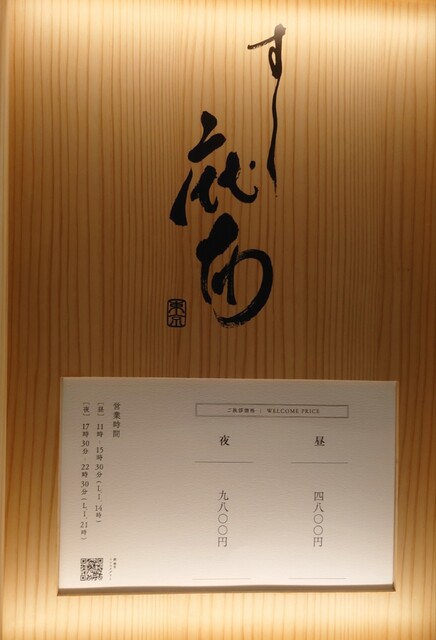 すし
麻布
東京
ご挨拶価格 | WELCOME PRICE
昼
四八〇〇円
夜
九八〇〇円
営業時間
[昼] 11時-15時30分(L.I.14時)
[夜] 17時30分-22時30分(L.I.21時)